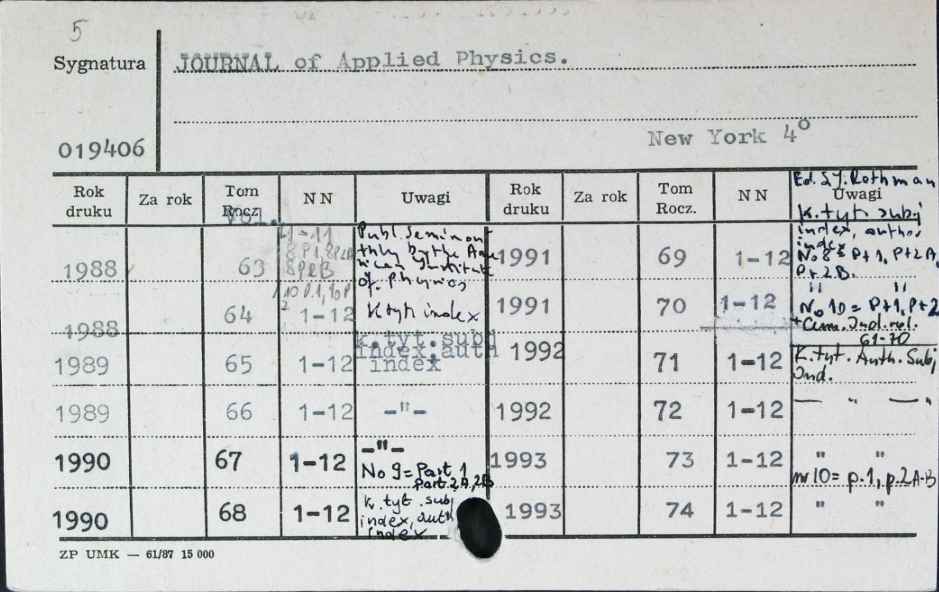 5
Sygnatura
JOURNAL of Applied Physics.
019406
New York 4°
Rok druku Za rok Tom Rocz. NN Uwagi Rok druku Za rok Tom Rocz. NN Uwagi
Vol.
Ed. S.J. Rothman
K.tyt. subj
index, author
index
1988 63 1-11 8P1,8P2A 8P2B Publ. Semimon
thly by the Ame
rican Institute
of Physics
1991 69 1-12 No 8= P+1, P+2A,
P+2B.
1988 64 1-12 K tyt index
1991 70 1-12 " "
No 10 = P+1, P+2
+Cum. Ind. vol.
61-70
1989 65 1-12 k.tyt.subd
index.auth
index
1992 71 1-12 K.tyt. Auth. Subj.
Ind.
1989 66 1-12 -"-
1992 72 1-12 — " — "
1990 67 1-12 -"-
No 9=Part 1
Part.2A,2B
1993 73 1-12 " "
nr 10= p.1, p.2A-B
1990 68 1-12 K.tyt.subj
index, auth
index
1993 74 1-12 " "
ZP UMK — 61/87 15 000